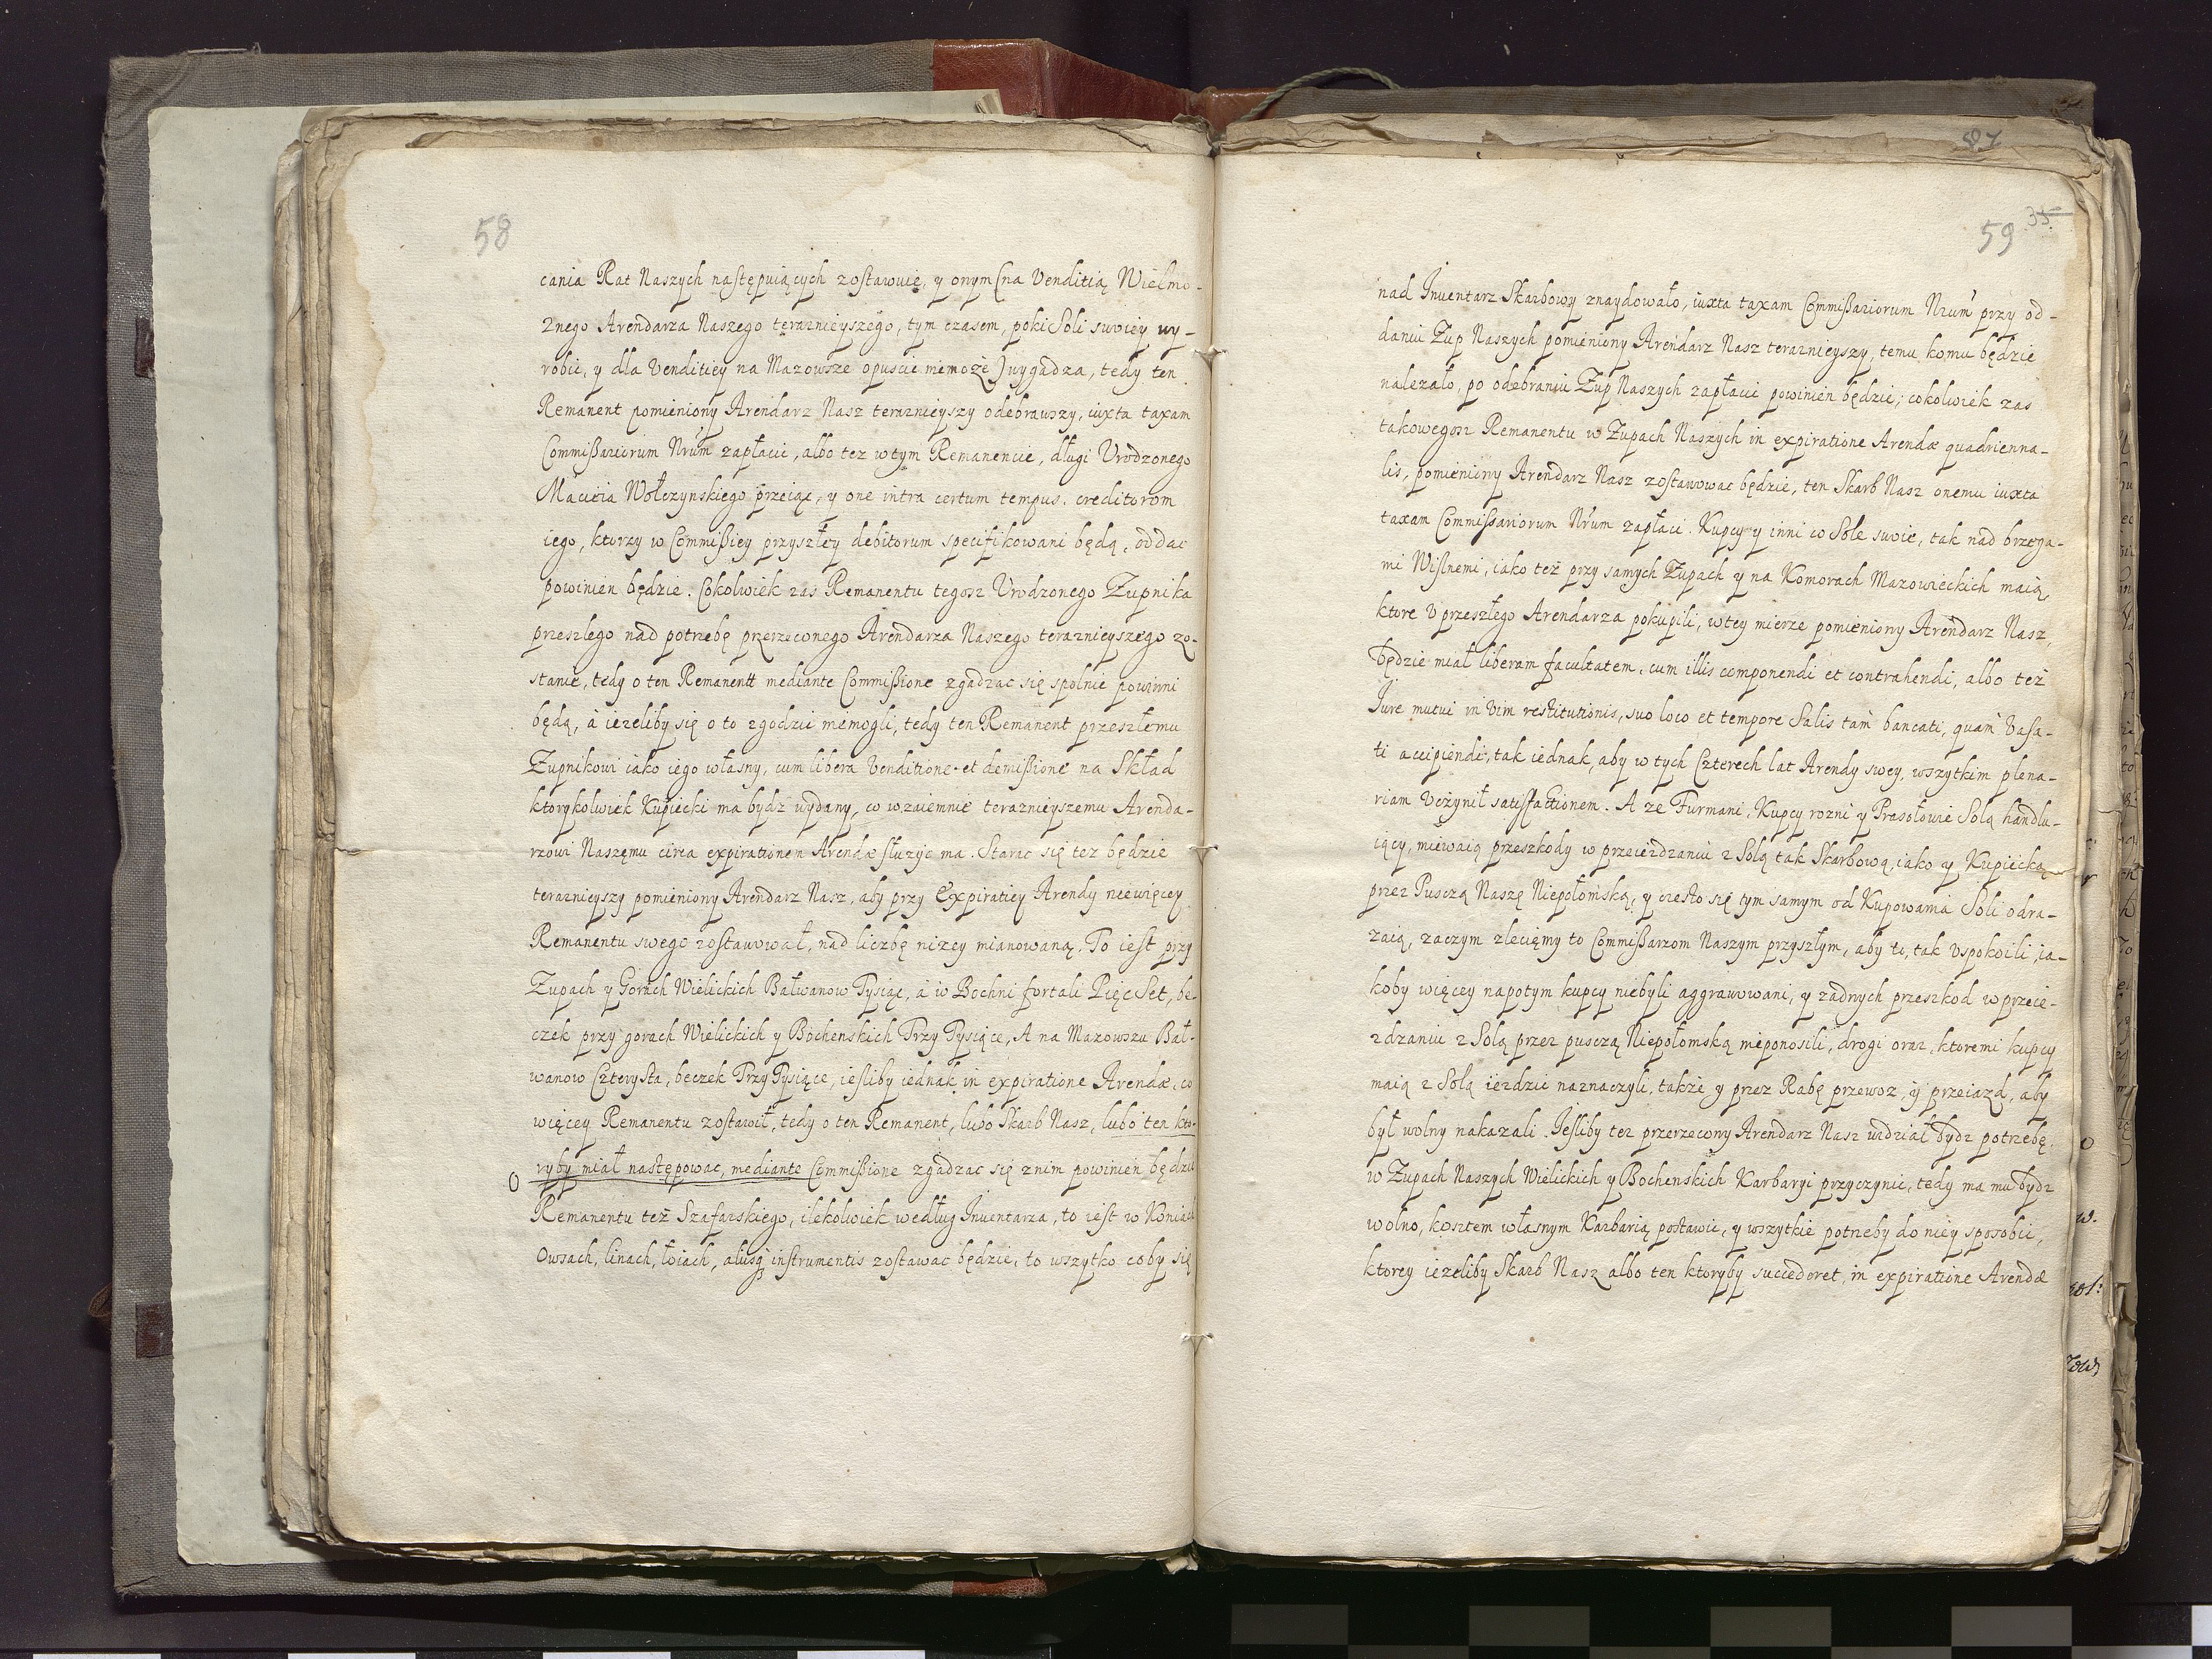 58
cania Rat Naszych następuiących zostawuię, y onym (na Venditią Wielmo-
żnego Arendarza Naszego teraznieyszego, tym czasem, poki Soli swoiey wy-
robic, y dla Venditiey na Mazowsze opuscic niemoże) wygadza, tedy ten
Remanent pomieniony Arendarz Nasz teraznieyszy odebrawszy, iuxta taxam
Commißariorum Nrūm zapłacic, albo tez w tym Remanencie, długi Vrodzonego
Macieia Wołczynskiego przeiąc, y one intra certum tempus. creditorom
iego, ktorzy w Commißiey przyszłey debitorum specifikowani będą, oddac
powinien będzie. Cokolwiek zas Remanentu tegosz Vrodzonego Żupnika
przeszlego nad potrzebę przerzeconego Arendarza Naszego teraznieyszego zo-
stanie, tedy o ten Remanentt mediante Commißione zgadzac się spolnie powinni
będą, á iezeliby się o to zgodzic niemogli, tedy ten Remanent przeszłemu
Żupnikowi iako iego własny, cum libera Venditione et demißione na Skład
ktorykolwiek Kupiecki ma bydz wydany, co wzaiemnie teraznieyszemu Arenda-
rzowi Naszęmu circa expirationem Arendæ służyc ma. Starac się tez będzie
teraznieyszy pomieniony Arendarz Nasz, aby przy Expiratiey Arendy niewięcey
Remanentu swego zostawował, nad liczbę nizey mianowaną. To iest przy
Zupach y Gorach Wielickich Bałwanow Tysiąc, á w Bochni fortali Pięc Set, be-
czek przy gorach Wielickich y Bochenskich Trzy Tysiące, A na Mazowszu Bał-
wanow Czterysta, beczek Trzy Tysiące, iesliby iednak in expiratione Arendæ, co
więcey Remanentu zostawił, tedy o ten Remanent, lubo Skarb Nasz, lubo ten kto-
ryby miał następowac, mediante Commißione zgadzac się z nim powinien będzie
Remanentu też Szafarskiego, ilekolwiek według Inwentarza, to iest w Koniach
Owsach, linach, łoiach, alusą instrumentis zostawac będzie, to wszytko coby się
87
59 35
nad Inwentarz Skarbowy znaydowało, iuxta taxam Commißariorum Nrūm przy od-
daniu Żup Naszych pomieniony Arendarz Nasz teraznieyszy, temu komu będzie
nalezało, po odebraniu Żup Naszych zapłacic powinien będzie; cokolwiek zas
takowegosz Remanentu w Żupach Naszych in expiratione Arendæ quadrienna-
lis, pomieniony Arendarz Nasz zostawowac będzie, ten Skarb Nasz onemu iuxta
taxam Commissariorum Nrūm zapłaci. Kupcy y inni co Sole swoie, tak nad brzega-
mi Wislnemi, iako też przy samych Żupach y na Komorach Mazowieckich maią,
ktore V przeszłego Arendarza pokupili, w tey mierze pomieniony Arendarz Nasz,
będzie miał liberam facultatem, cum illis componendi et contrahendi, albo też
Iure mutui in Vim restitutionis, suo loco et tempore Salis tam̄ bancati, quam̄ Vasa-
ti accipiendi, tak iednak, aby w tych Czterech lat Arendy swey, wszytkim plena-
riam Vczynił satisfactionem. A ze Furmani, Kupcy rozni y Prasołowie Solą handlu-
iący, miewaią przeszkody w przeieżdzaniu z Solą tak Skarbową, iako y Kupiecką
przez Pusczą Naszę Niepołomską, y często się tym samym od Kupowania Soli odra-
zaią, zaczym zlecięmy to Commißarzom Naszym przyszłym, aby to, tak Vspokoili, ia-
koby więcey napotym kupcy niebyli aggrawowani, y zadnych przeszkod w przeie-
zdzaniu z Solą przez pusczą Niepołomską nieponosili, drogi oraz, ktoremi kupcy
maią z Solą iezdzic naznaczyli, także y przez Rabę przewoz, y przeiazd, aby
był wolny nakazali. Iesliby tez przerzecony Arendarz Nasz widział bydz potrzebę,
w Żupach Naszych Wielickich y Bochenskich Karbaryi przyczynic, tedy ma mu bydz
wolno, kosztem własnym Karbarią postawic, y wszytkie potrzeby do niey sposobic,
ktorey iezeliby Skarb Nasz albo ten ktoryby succederet, in expiratione Arendæ